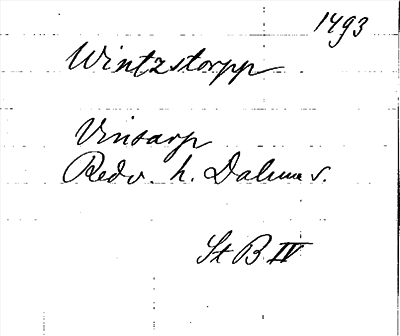 1493
Wintzstorpp
Vinsarp
Redv. h. Dalum s.
St B IV